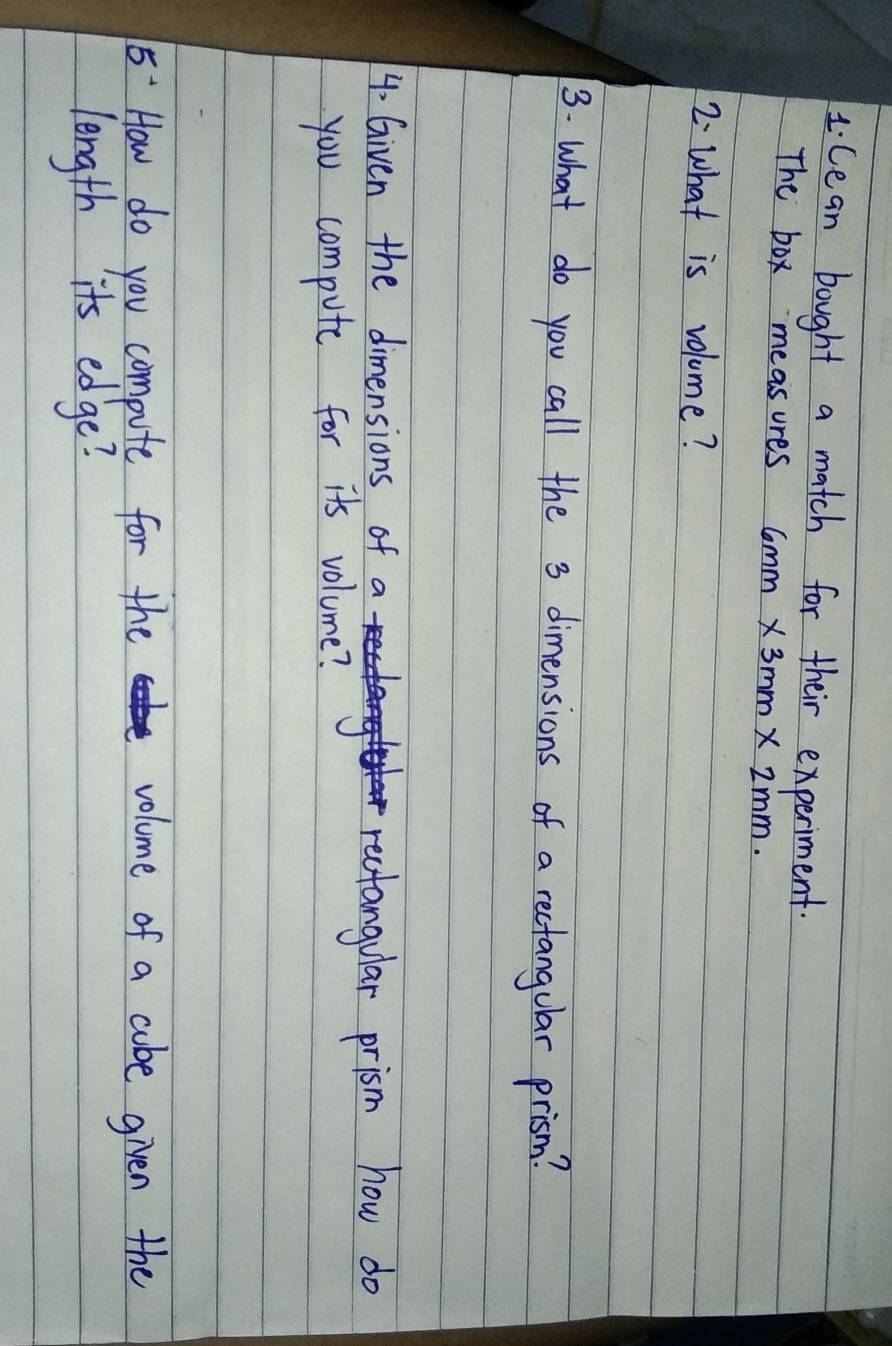 1. Cean bought a match for their experiment.
The box measures 6mm x 3mm x 2mm.
2. What is volume?
3. What do you call the 3 dimensions of a rectangular prism?
4. Given the dimensions of a rectangular prism how do
you compute for its volume?
5. How do you compute for the volume of a cube given the
length its edge?